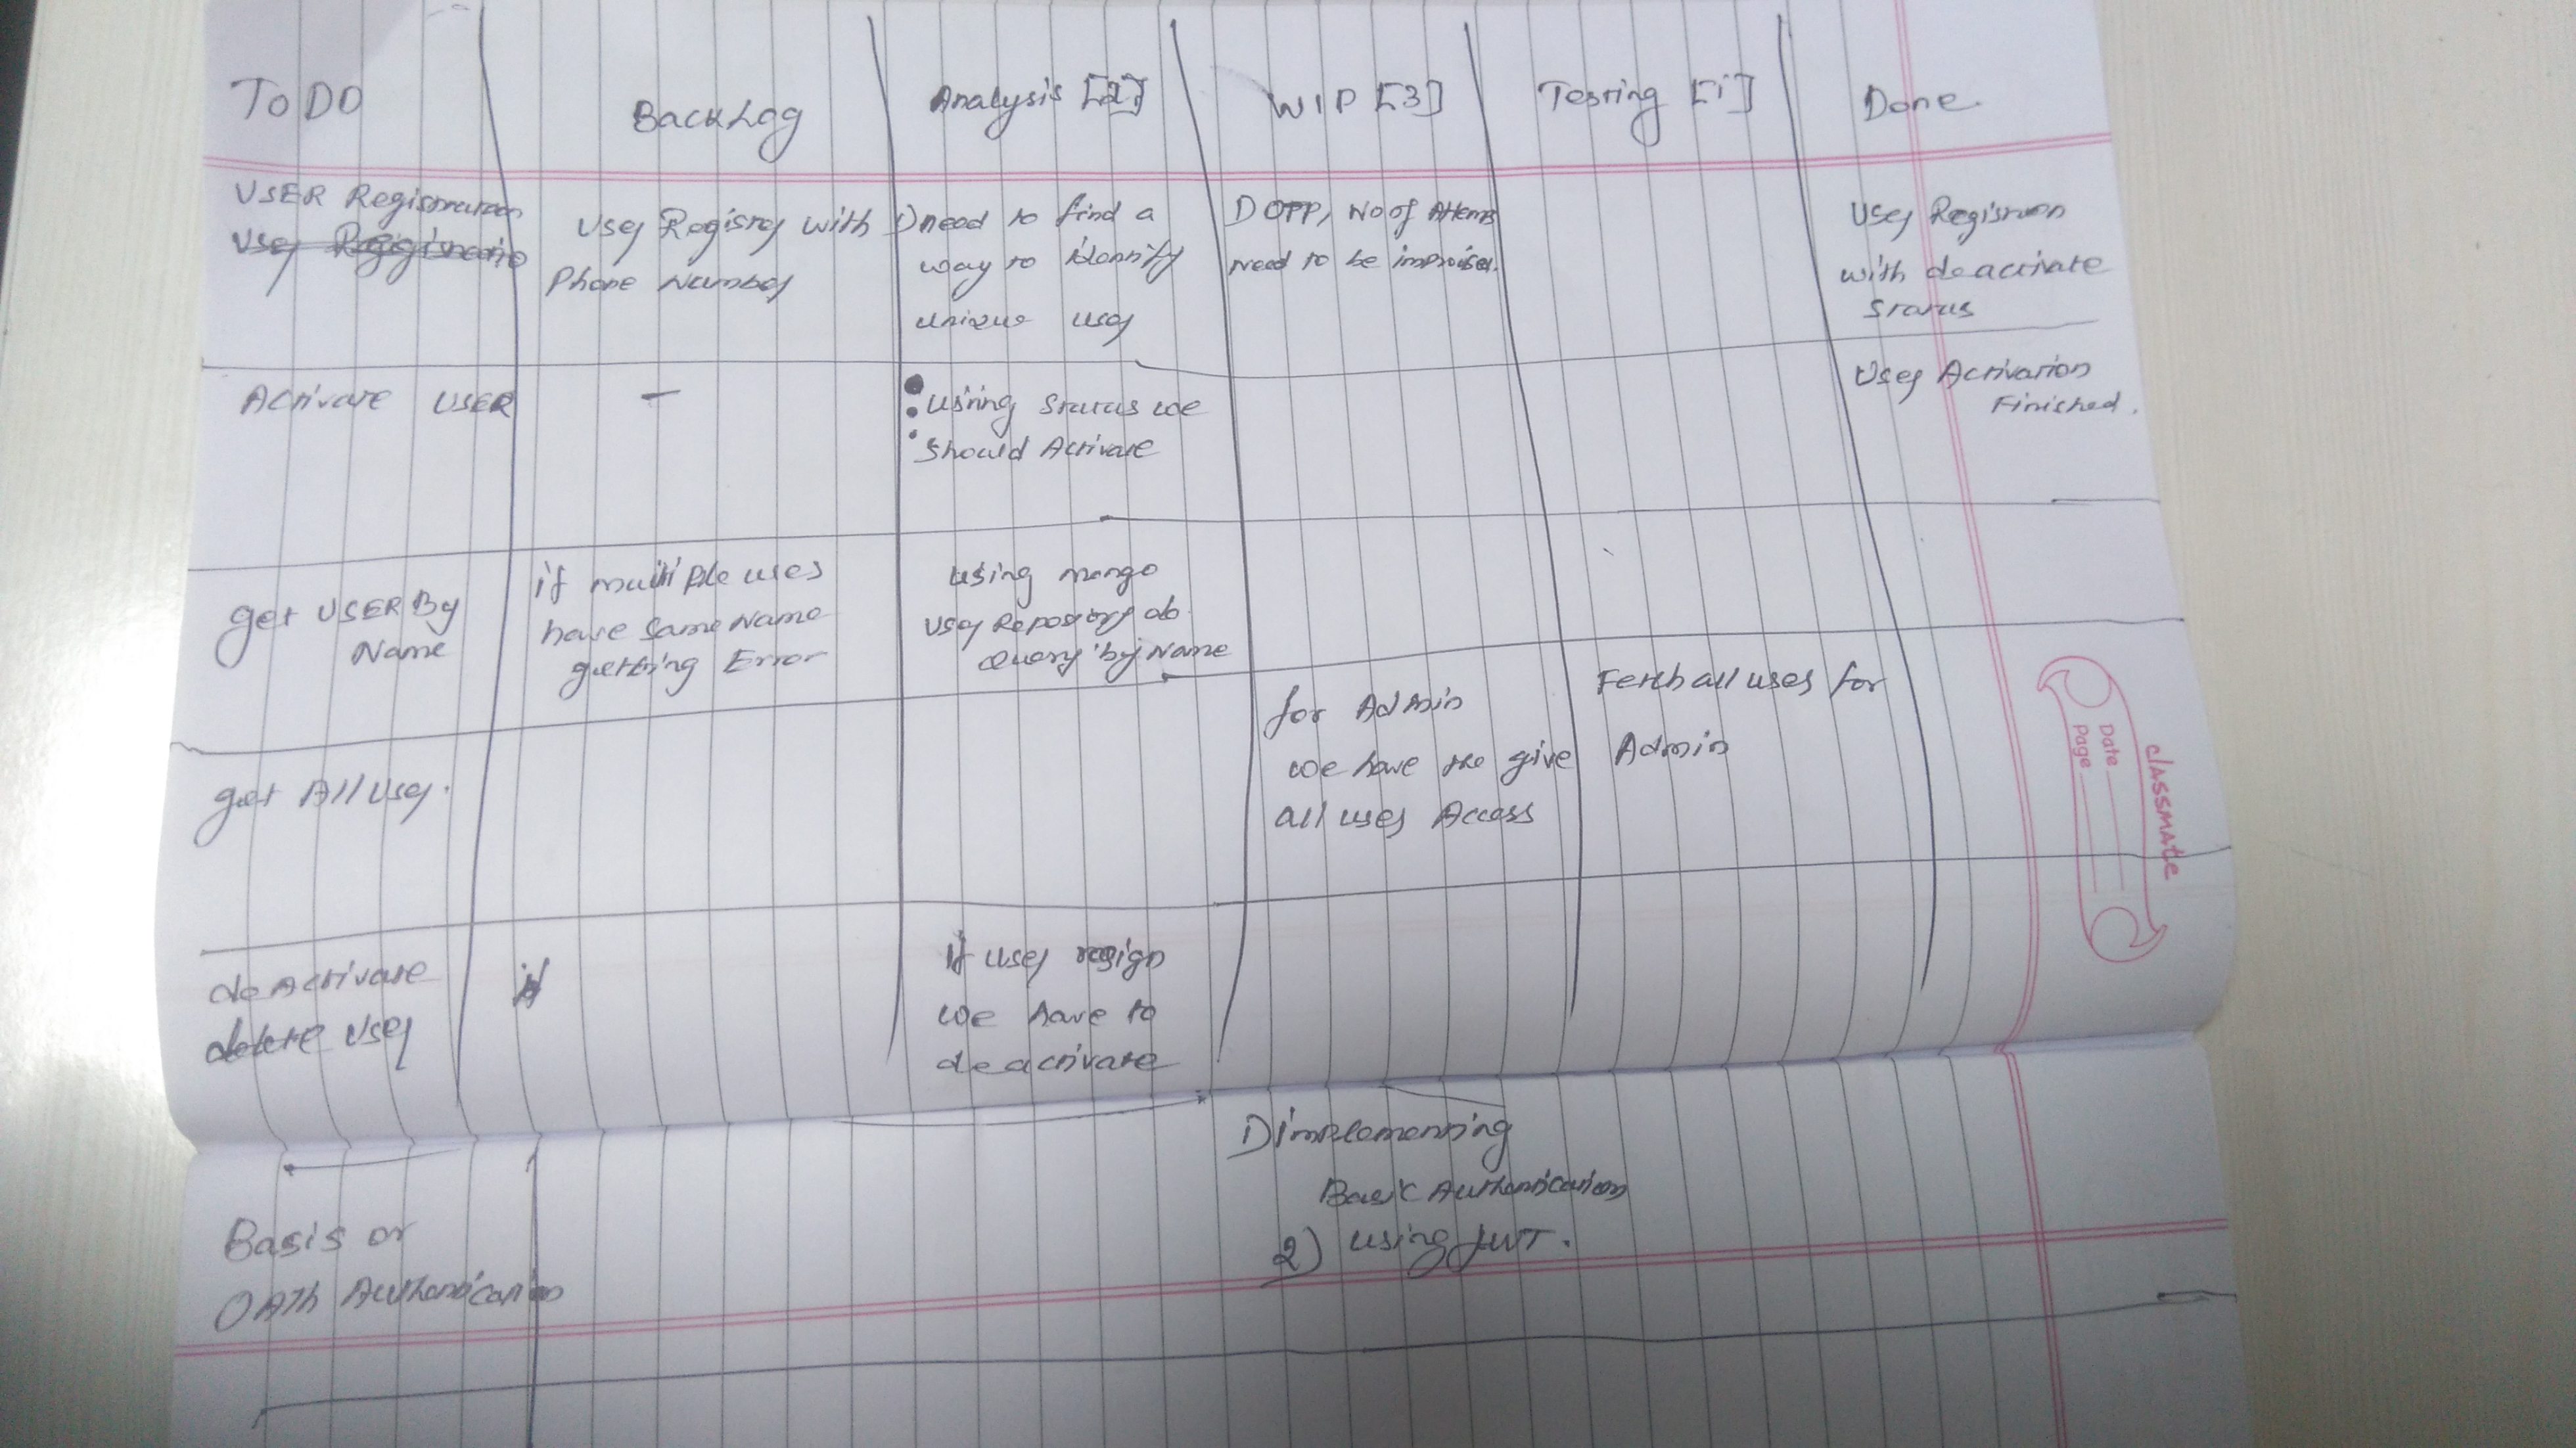 ToDO
BackLog
Analysis [2]
WIP [3]
Testing [1]
Done.
USER Registration
User Registratio
User Register with
Phone Number
1) need to find a
way to identify
unique user
1) OTP, No of Attems
need to be improvised.
User Registraion
with deactivate
Status
Activate USER
-
using status we
should Activate
User Activation
Finished.
get USER By
Name
if multiple users
have same Name
getting Error
using mongo
User Repository do
Query by Name
get All User.
for Admin
we have the give
all users Access
Fetch all users for
Admin
deActivate
delete User
if
if user resign
we have to
deactivate
Basis or
OATh Authentication
1) implementing
Basic Authentication
2) using JWT.
classmate
Date
Page